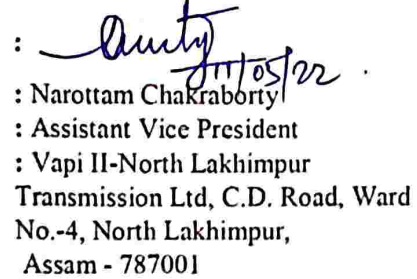 :
11/05/22 .
: Narottam Chakraborty
: Assistant Vice President
: Vapi II-North Lakhimpur
Transmission Ltd, C.D. Road, Ward
No.-4, North Lakhimpur,
Assam - 787001